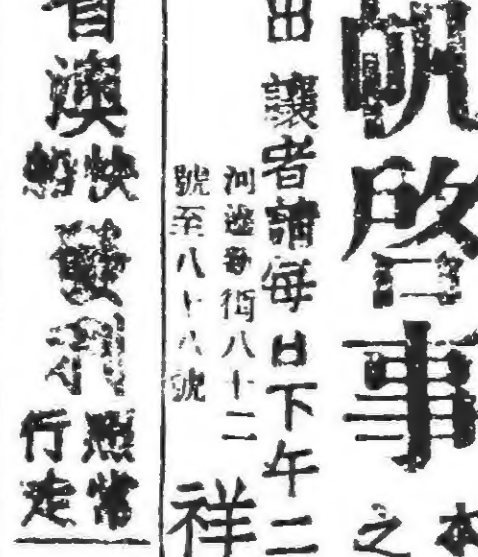 帆啓事
本
之
出讓者請每日下午二
河邊新街八十二
號至八十八號
祥
省澳
快
船
利
照常
行走